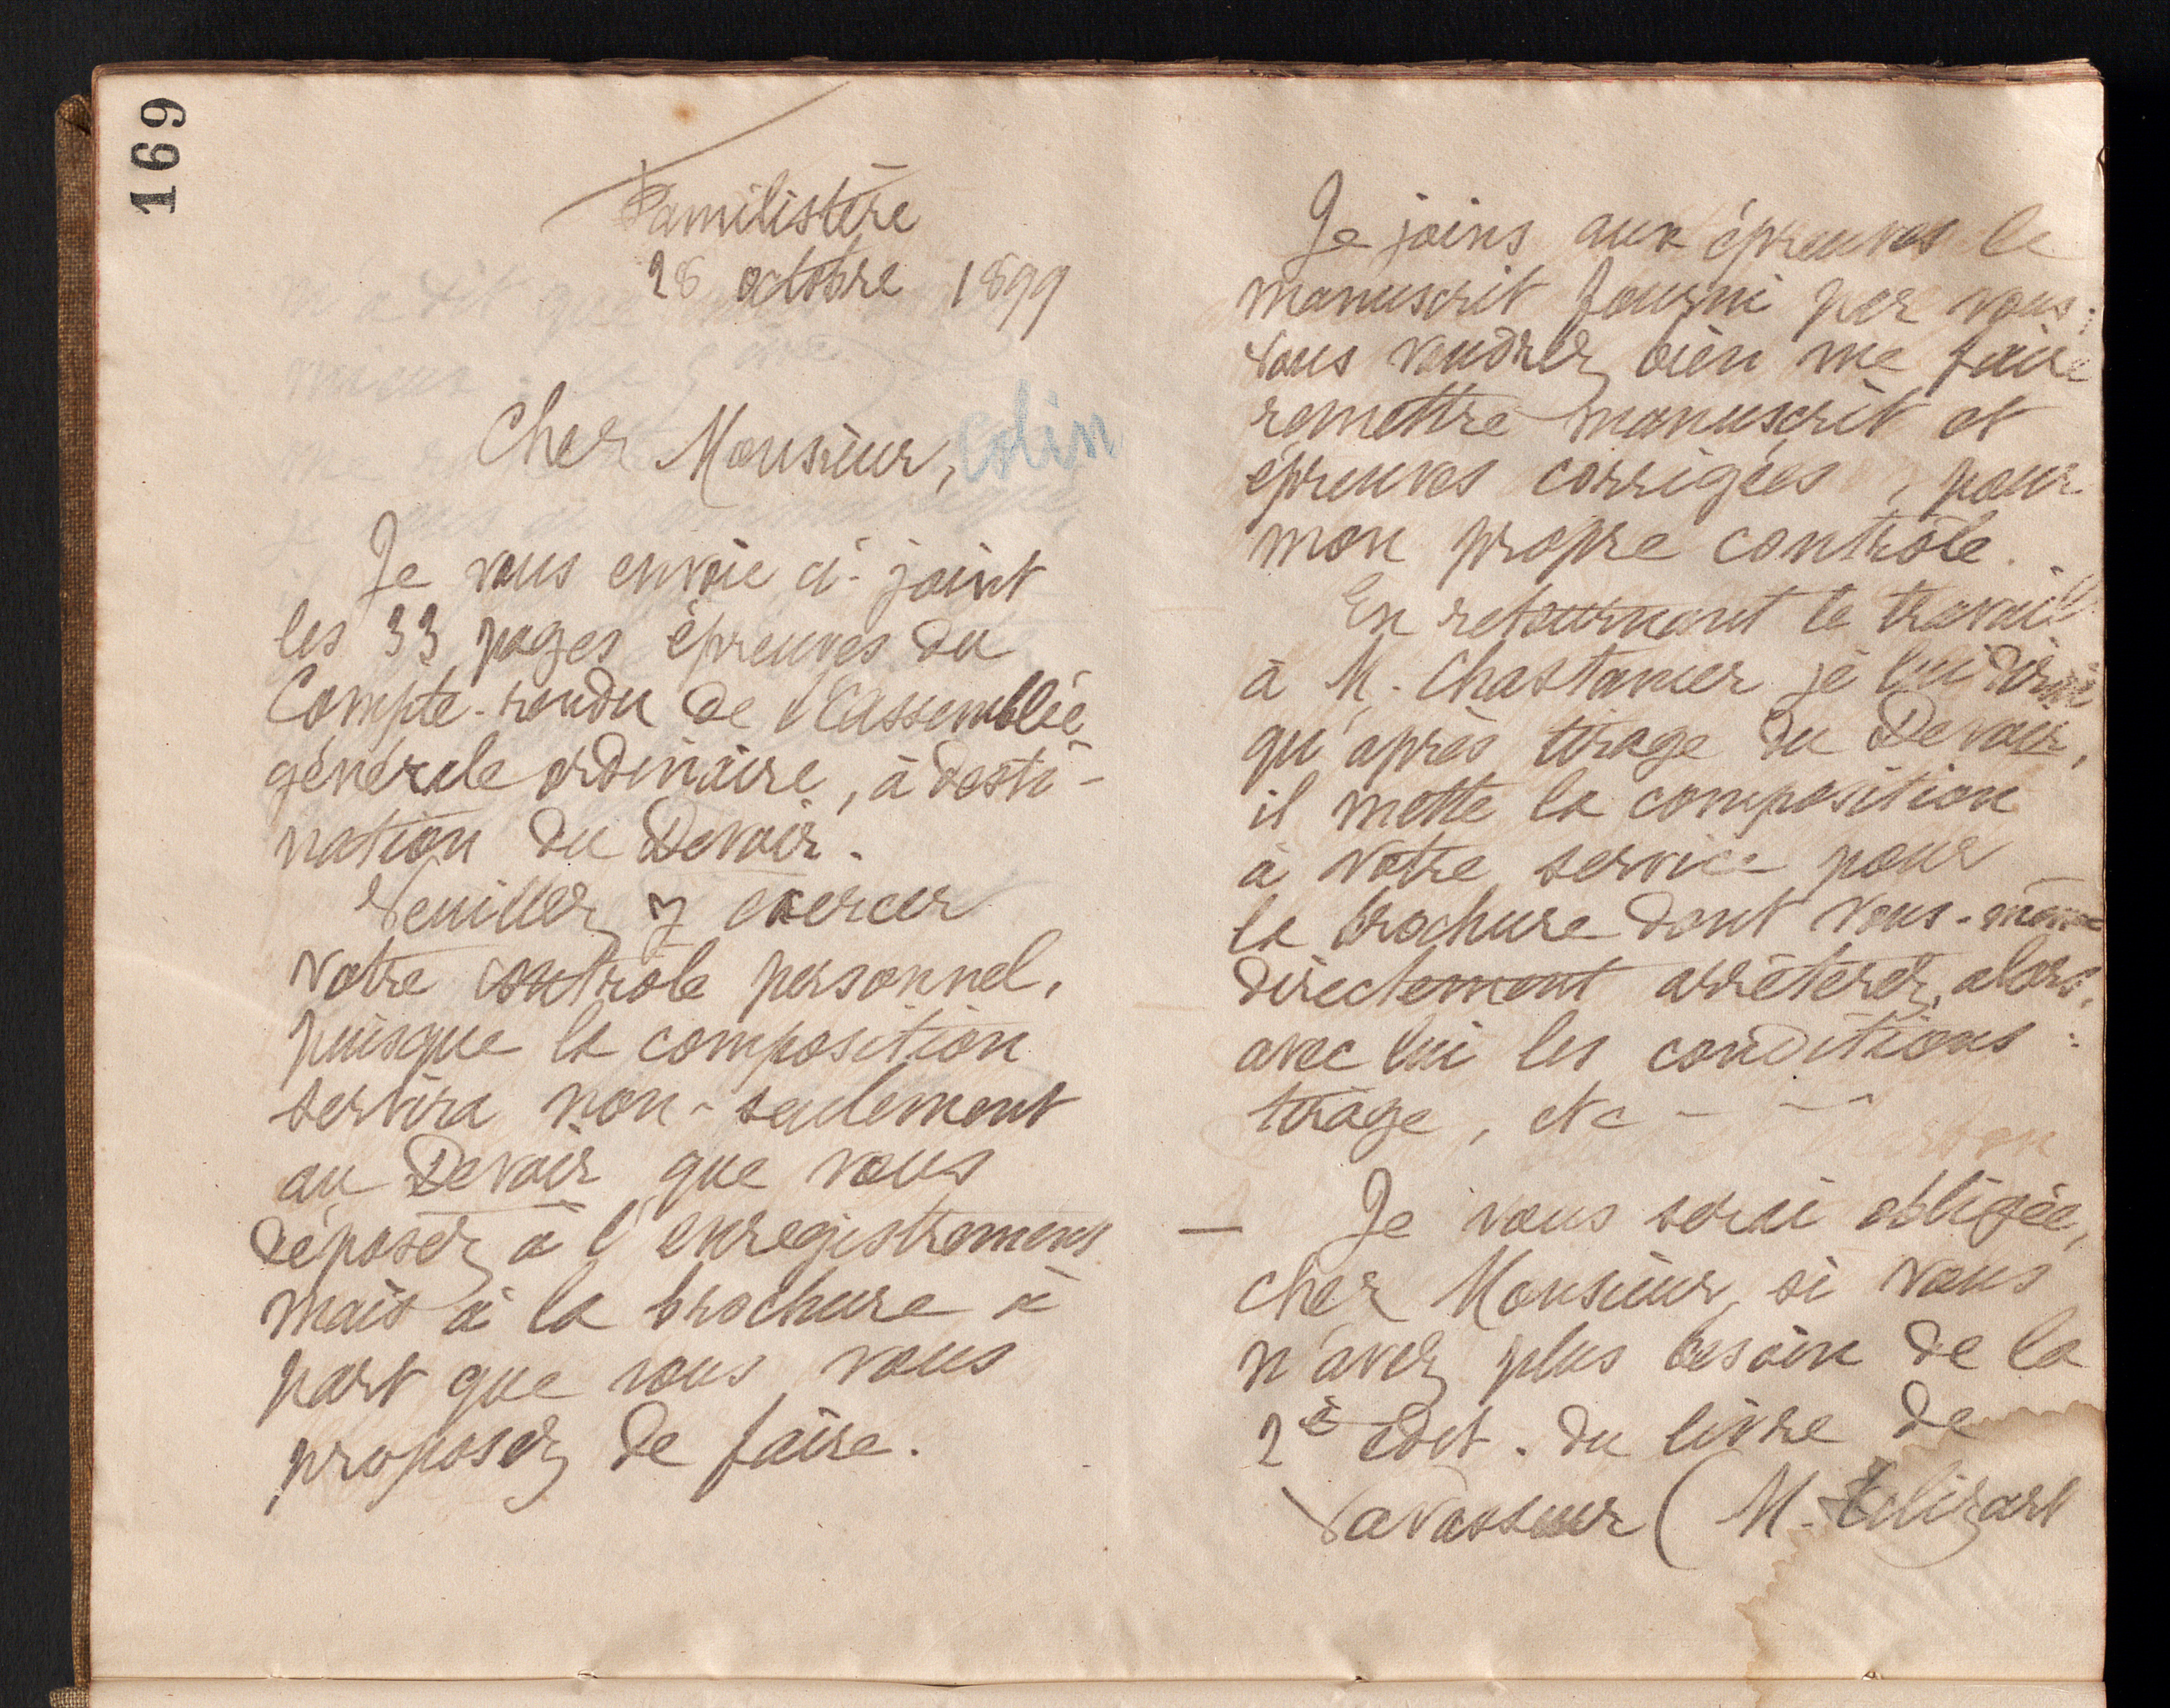 169
Familistère
28 octobre 1899
Cher Monsieur, Colin
Je vous envoie ci-joint
les 33 pages épreuves du
Compte-rendu de l'assemblée
générale ordinaire, à desti-
nation du Devoir.
Veuillez y exercer
votre contrôle personnel,
puisque la composition
servira non-seulement
au Devoir que vous
déposez à l'enregistrement
mais à la brochure à
part que vous vous
proposez de faire.
Je joins aux épreuves le
manuscrit fourni par vous;
vous voudrez bien me faire
remettre manuscrit et
épreuves corrigées, pour
mon propre contrôle.
En retournant le travail
à M. Chastanier je lui dirai
qu'après tirage du Devoir,
il mette la composition
à votre service pour
la brochure dont vous-même
directement arrêterez, alors,
avec lui les conditions :
tirage, etc - - -
— Je vous serai obligée,
cher Monsieur, si vous
n'avez plus besoin de la
2e édit. du livre de
Vavasseur (M.